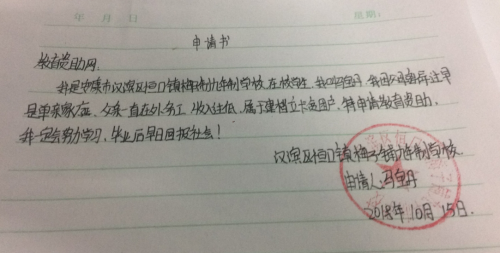 年 月 日 星期:
申请书
教育资助网:
我是安康市汉滨区恒口镇梅子铺九年制学校在校学生,我叫冯
是单亲家庭,父亲一直在外务工,收入低,属于建档立卡贫困户,特申请教育资助。
我一定会努力学习,毕业后早日回报社会!
汉滨区恒口镇梅子铺九年制学校.
申请人:冯
2018年10月15日.